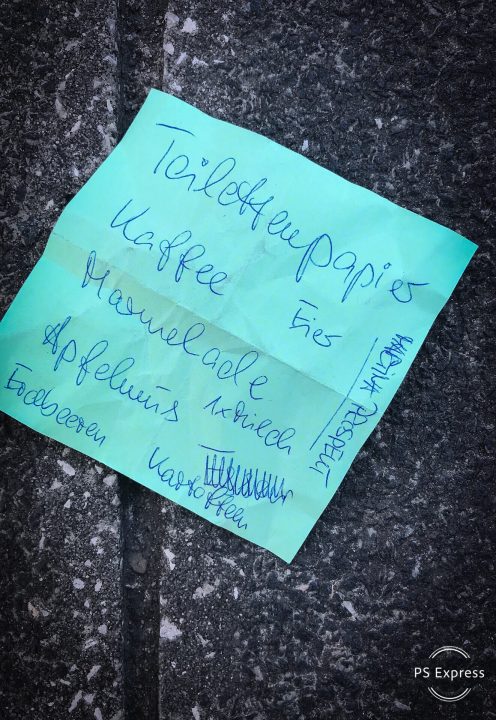 Toilettenpapier
Kaffee
Eier
Marmelade
Apfelmus 1x Milch
Erdbeeren
Kartoffeln
PROSPEKT
PS Express